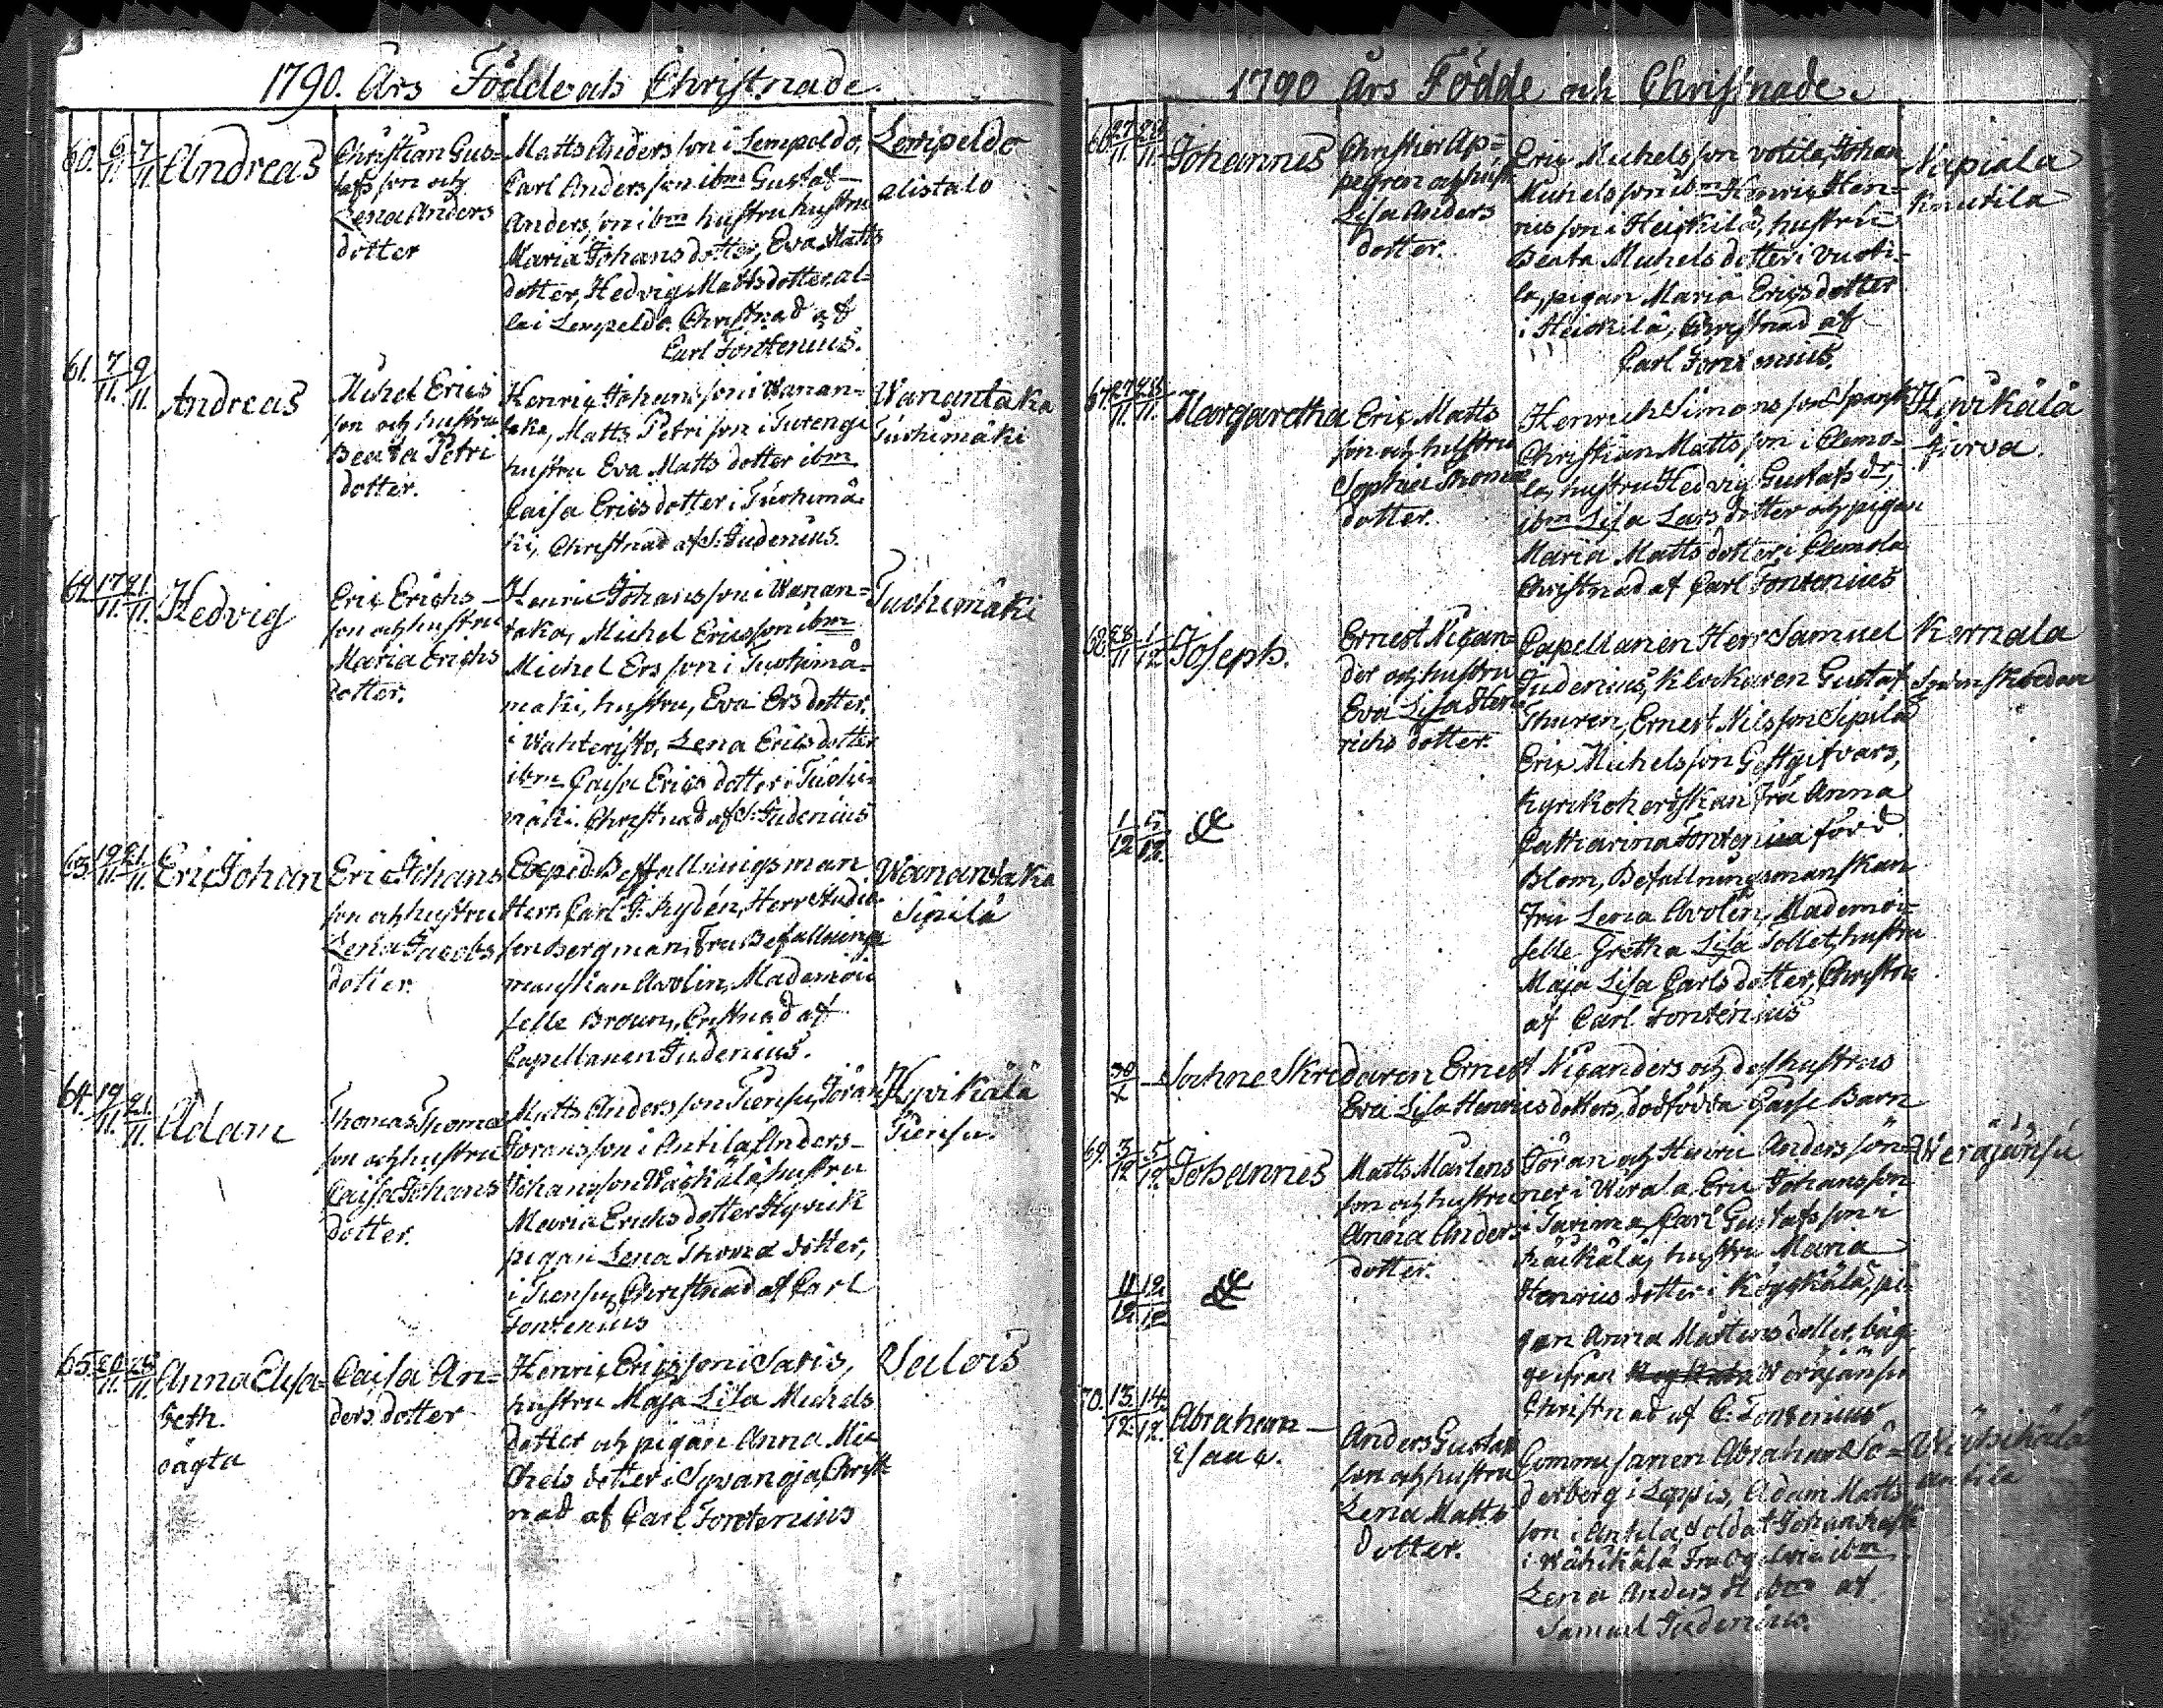 1790. Års Födde och Christnade.
60. 6/11 7/11 Andreas
Christian Gus=
tafs son och
Lena Anders
dotter
Matts Anders son i Lempeldo,
Carl Anders son ibm Gustaf
Anders son ibm hustru hustru
Maria Johans dotter, Eva Matts
dotter, Hedvig Mattsdotter al-
la i Lempeldo. Christnad af
Carl Fontenius.
Lempeldo
alistalo
61. 7/11 9/11 Andreas
Michel Erics
son och hustru
Beata Petri
dotter.
Henric Johans son i Wanan=
taka, Matts Petri son i Turengi
hustru Eva Matts dotter ibm
Caisa Erics dotter i Tuohimä
ki, Christnad af S. Judenius.
Wanantaka
Tuohimäki
62. 17/11 21/11 Hedvig
Eric Erichs
son och hustru
Maria Erichs
dotter.
Henric Johans son i Wanan=
taka, Michel Ericsson ibm
Michel Ers son i Tuohimä-
mäki, hustru, Eva Ers dotter.
i Wahteristo, Lena Erics dotter
ibm Caisa Erics dotter i Tuohi=
mäki. Christnad af S. Judenius
Tuohimäki
63. 19/11 21/11 Eric Johan
Eric Johans
son och hustru
Lena Jacobs
dotter.
Exped. Beffallningsman
Herr Carl J. Rydén, Herr Studio
sen Bergman, Fru Befallnings
manskan Avolin, Mademoi
selle Broun, Cristnad af
Capellanen Judenius.
Wanantaka
Sipilä
64. 19/11 21/11 Adam
Thomas Thomæ
son och hustru
Caisa Johans
dotter.
Matts Anders son Piensu, Jöran
Jöransson i Antila, Anders
Johansson hustru
Maria Erichs dotter Hyvik
pigan Lena Thomæ dotter,
i Piensu, Christnad af Carl
Fontenius
Hyvikälä
Piensu.
65. 11 11 Anna Elisa=
beth.
oägta
Caisa An=
ders dotter
Henric Ericsson i Saris,
hustru Maja Lisa Michels
dotter och pigan Anna Mi=
chels dotter i Sysanoja, Christ=
nad af Carl Fontenius
Salois
1790 Års Födde och Christnade.
66. 27/11 28/11 Johannes
Christier Ap=
pegren och hust
Lisa Anders
dotter.
Eric Michels son votila, Johan
Michels son ibm Henric Hen=
rics son i Heickilä, hustru
Beata Michels dotter i Vuoti-
la, pigan Maria Erics dotter
i Heickilä, Christnad af
Carl Fontenius.
Napiala
Knutila
67. 27/11 28/11 Margaretha
Eric Matts
son och hustru
Sophia Thomæ
dotter.
Henrich Simons son Spark
Christian Matts son i Clemo-
la, hustru Hedvig Gustafs dr,
ibm Lisa Lars dotter och pigan
Maria Matts dotter i Clemola
Christnad af Carl Fontenius
Hyvikälä
tiorva.
68. 28/11 1/12 Joseph.
Ernest Nigan=
der och hustru
Eva Lisa Hen
richs dotter.
Capellanen Herr Samuel
Judenius, Klockaren Gustaf
Thuren, Ernest Nils son Sipilä
Eric Michels son Gestgifvars,
kyrckoherdskan Fru Anna
Catharina Fontenia född
Blom, Befallningsmanskan
Fru Lena Avolin, Mademoi=
selle Gretha Lisa Tollet, hustru
Maja Lisa Carls dotter, Christn
af Carl Fontenius
Kernala
1/12 5/12
30/X Sochne Skredaren Ernest Niganders och dess hustrus
Eva Lisa Henrics dotters, dödfödda Gosse Barn
69. 3/12 5/12 Johannes
Matts Mårtens
son och hustru
Anna Anders
dotter.
Jöran och Henric Anders sön=
ner i Wirala, Eric Johansson
i Turima, Carl Gustafs son i
hustru Maria
Henrics dotter i pi=
gan Anna Mårtens dotter, båg
ge ifrån Weräjänsu
Christnad af C. Fontenius
Weräjänsu
11/12 12/12
70. 13/12 14/12 Abraham
Esaus.
Anders Gustafs
son och hustru
Lena Matts
dotter.
Commisarien Abraham Sö=
derberg i Loppis, Adam Matts
son i Antila, Soldat Johan
i Wähikälä Fru ibm
Lena Anders af
Samuel Judenius.
antila